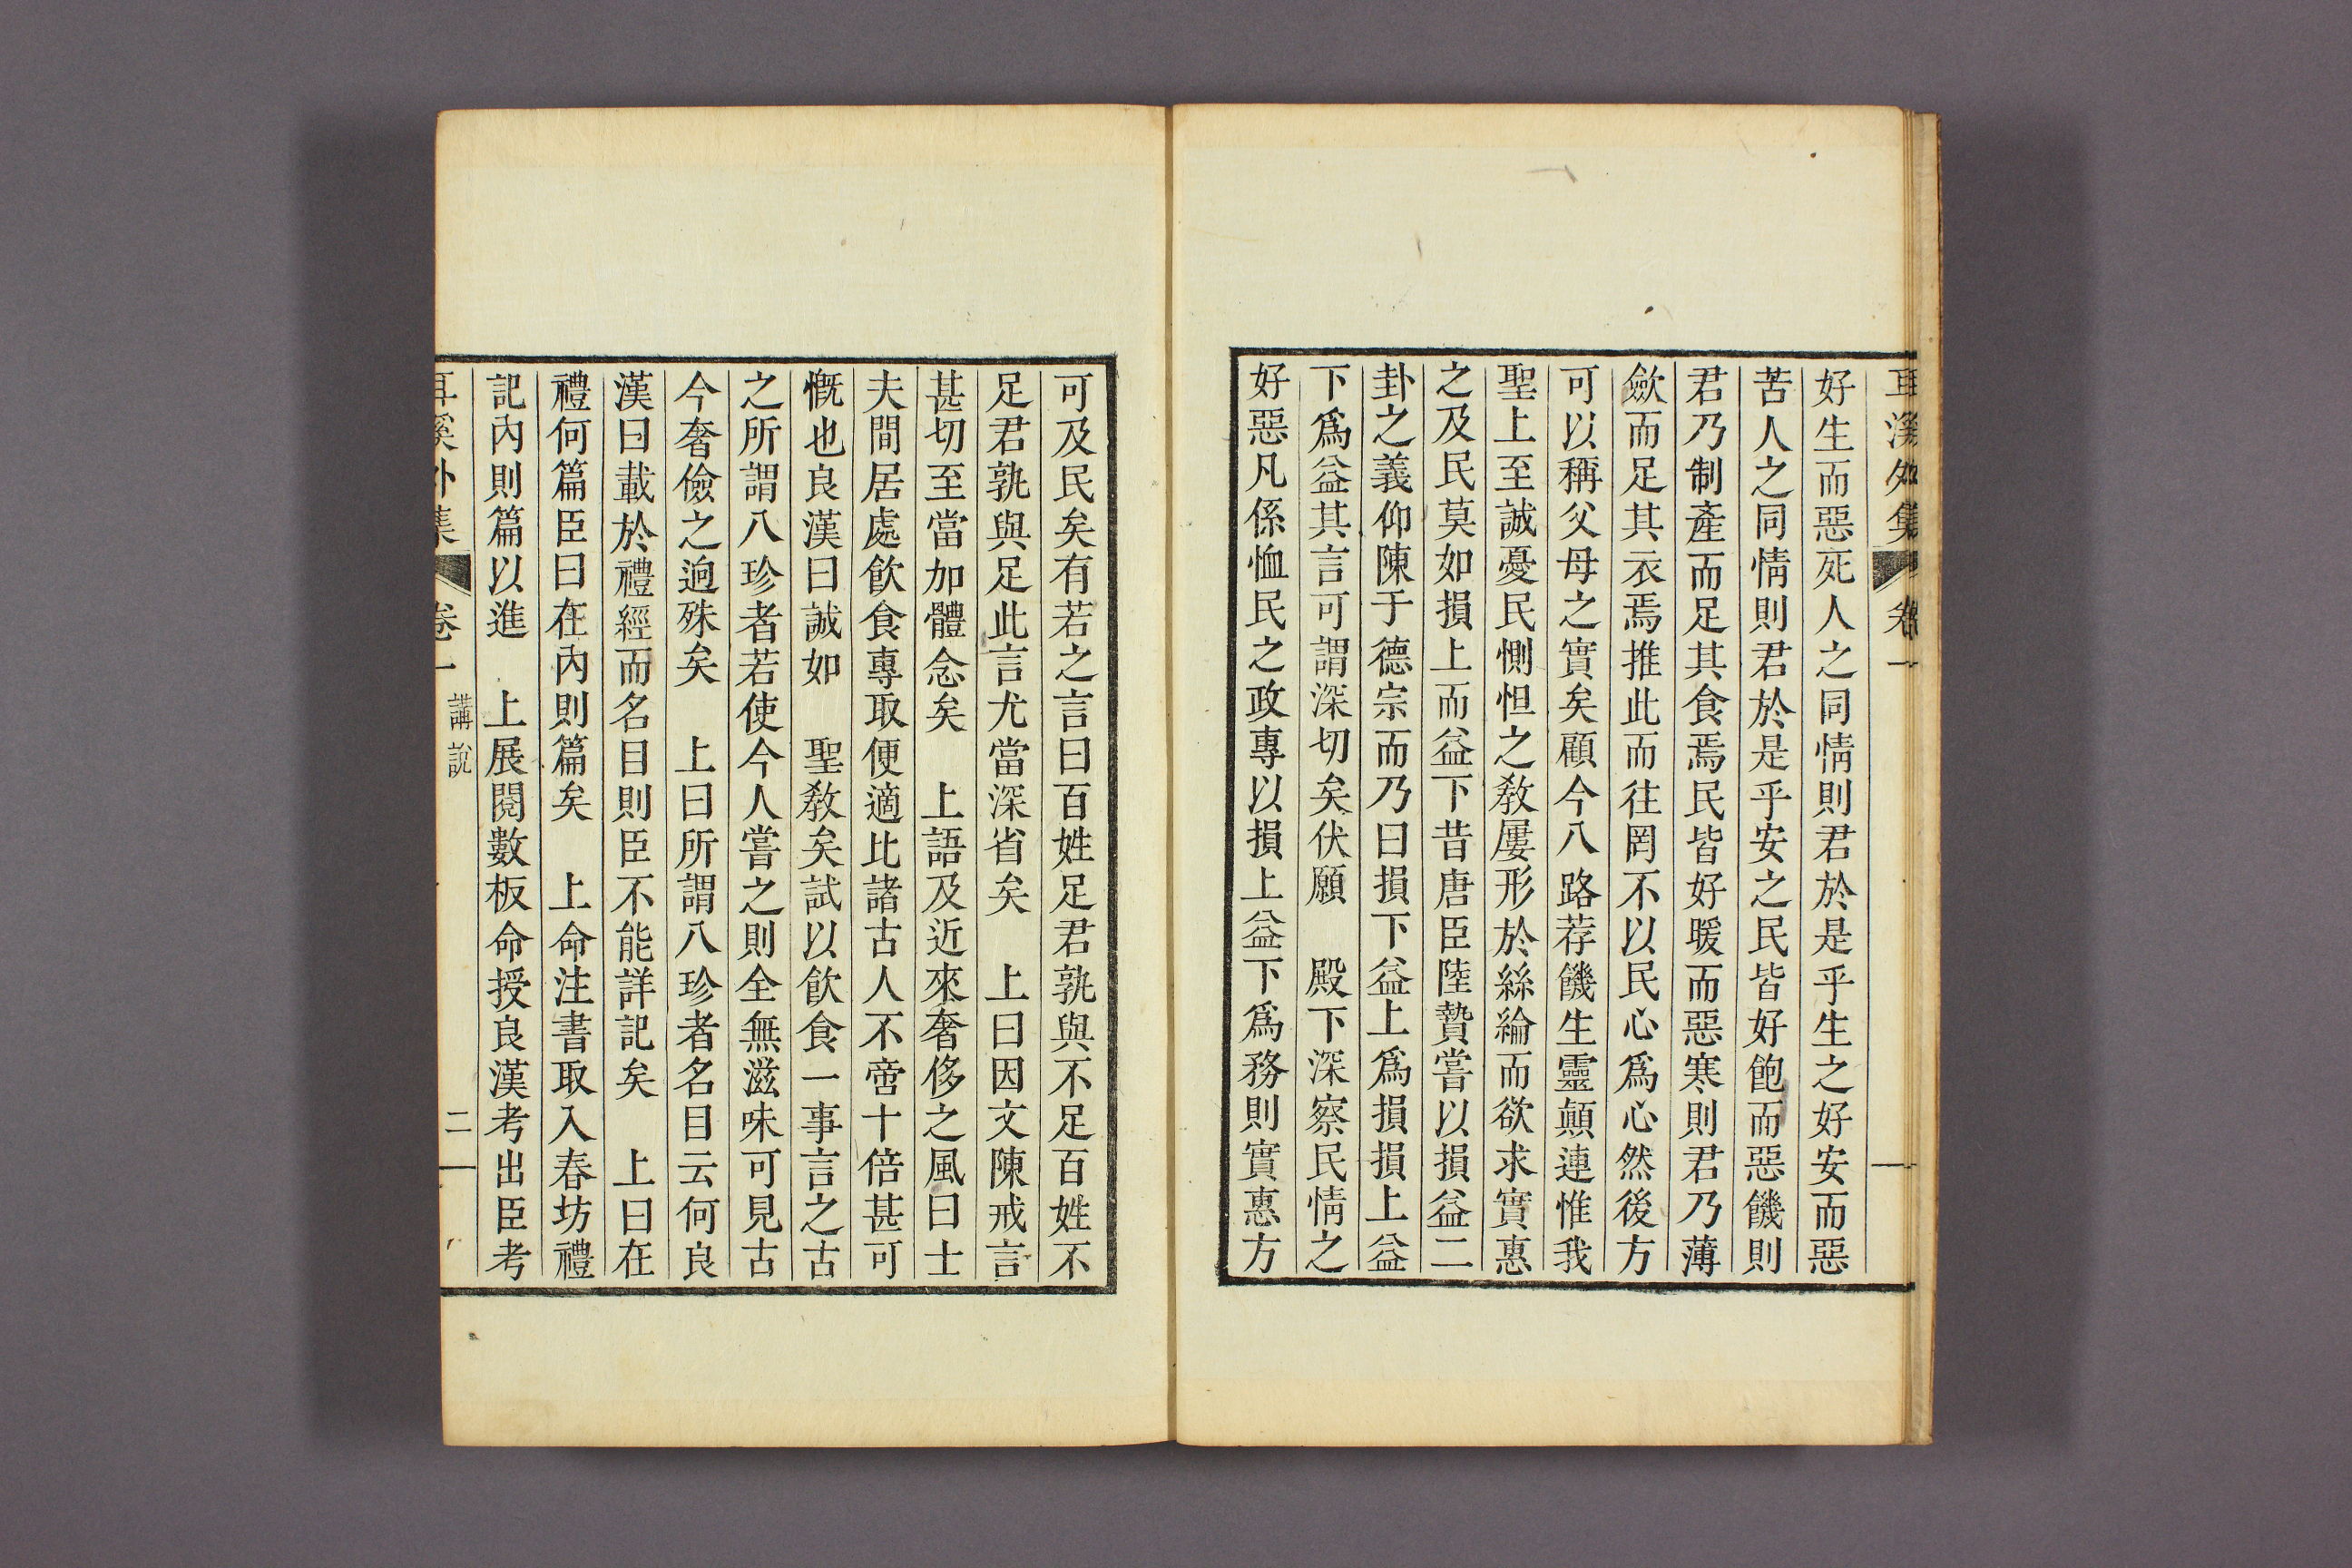 耳溪外集 卷一
好生而惡死人之同情則君於是乎生之好安而惡
苦人之同情則君於是乎安之民皆好飽而惡饑則
君乃制產而足其食焉民皆好暖而惡寒則君乃薄
斂而足其衣焉推此而往罔不以民心爲心然後方
可以稱父母之實矣顧今八路荐饑生靈顛連惟我
聖上至誠憂民惻怛之敎屢形於絲綸而欲求實惠
之及民莫如損上而益下昔唐臣陸贄嘗以損益二
卦之義仰陳于德宗而乃曰損下益上爲損損上益
下爲益其言可謂深切矣伏願　殿下深察民情之
好惡凡係恤民之政專以損上益下爲務則實惠方
可及民矣有若之言曰百姓足君孰與不足百姓不
足君孰與足此言尤當深省矣　上曰因文陳戒言
甚切至當加體念矣　上語及近來奢侈之風曰士
夫間居處飮食專取便適比諸古人不啻十倍甚可
慨也良漢曰誠如　聖敎矣試以飮食一事言之古
之所謂八珍者若使今人嘗之則全無滋味可見古
今奢儉之逈殊矣　上曰所謂八珍者名目云何良
漢曰載於禮經而名目則臣不能詳記矣　上曰在
禮何篇臣曰在內則篇矣　上命注書取入春坊禮
記內則篇以進　上展閱數板命授良漢考出臣考
耳溪外集 卷一 講說 二